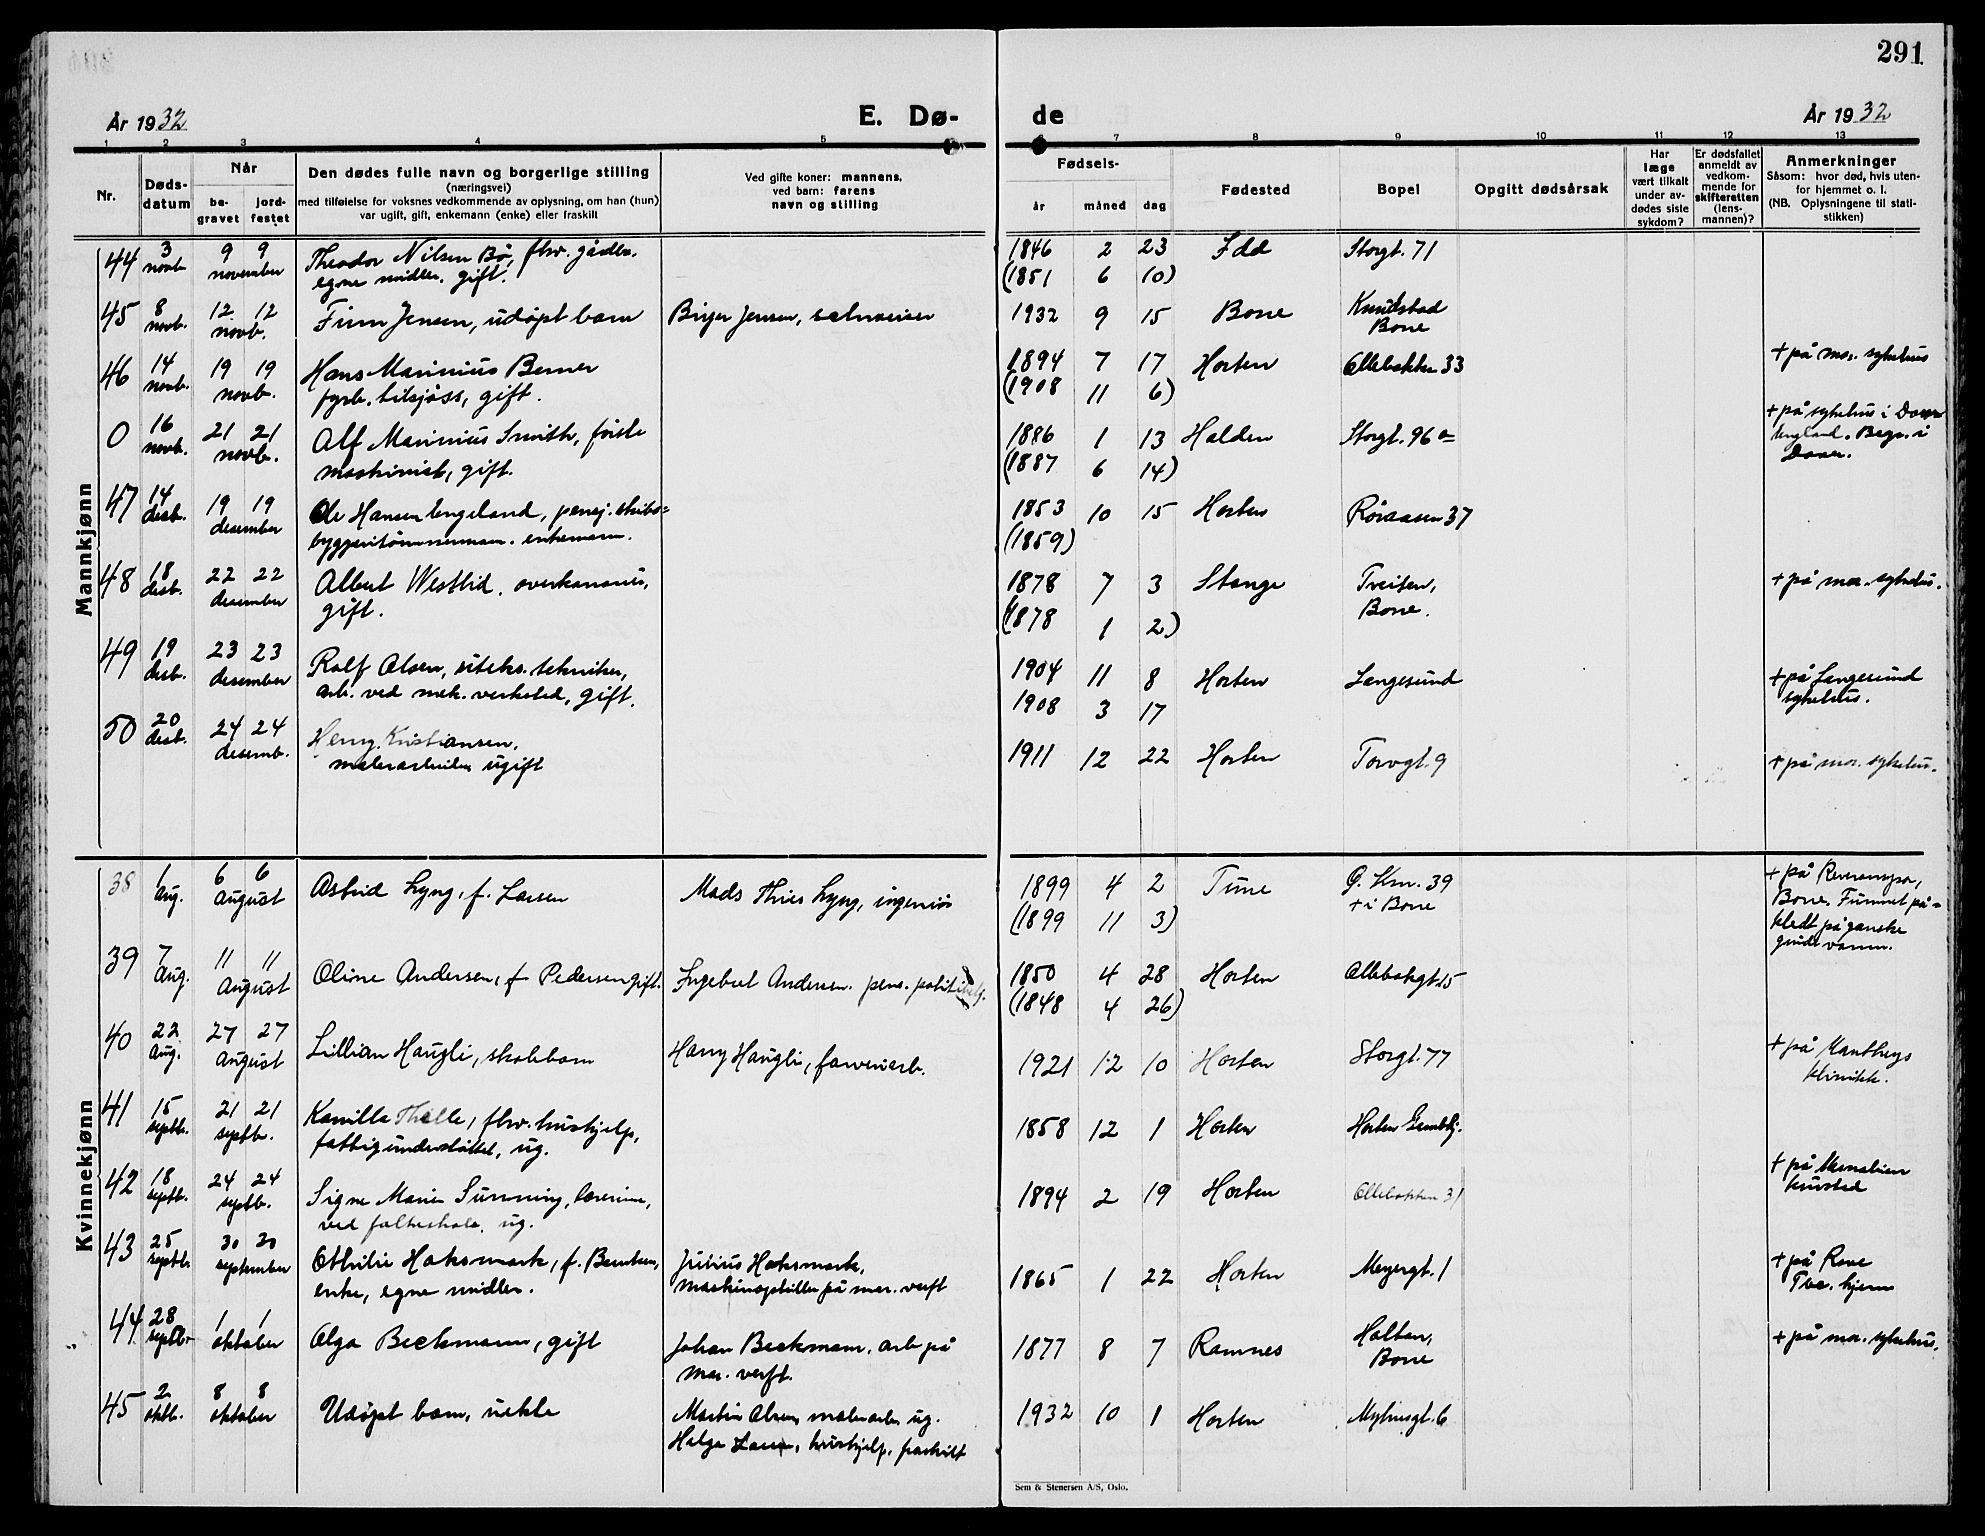 291
År 1932
E. Dø-
de
År 1932
1 2 3 4 5 6 7 8 9 10 11 12 13
Nr.
Døds-
datum
Når
be-
gravet
jord-
festet
Den dødes fulle navn og borgerlige stilling
(næringsvei)
med tilføielse for voksnes vedkommende av oplysning, om han (hun)
var ugift, gift, enkemann (enke) eller fraskilt
Ved gifte koner: mannens,
ved barn: farens
navn og stilling
Fødsels-
år måned dag
Fødested
Bopel
Opgitt dødsårsak
Har
læge
vært tilkalt
under av-
dødes siste
sykdom?
Er dødsfallet
anmeldt av
vedkom-
mende for
skifteretten
(lens-
mannen)?
Anmerkninger
Såsom: hvor død, hvis uten-
for hjemmet o. l.
(NB. Oplysningene til stati-
stikken)
Mannkjønn
44 3 novb. 9 9 november
Theodor Nilsen Bø, fhv. gårdbr.
egne midler. gift.
1846 2 23 Idd Storgt. 71
(1851 6 10)
45 8 novb. 12 12 novb.
Finn Jensen, udøpt barn
Birger Jensen, schweiser
1932 9 15 Borre Knudstad
Borre
46 14 novb. 19 19 novb.
Hans Marinius Berner
fyrb. tilsjøss, gift.
1894 7 17 Horten Ollebakken 33
(1908 11 6)
+ på mar. sykehus
0 16 novb. 21 21 novb.
Alf Marinius Smith, første
maskinist, gift.
1886 1 13 Halden Storgt. 96a
(1887 6 14)
+ på sykehus i Dover
England. Begr. i
Dover.
47 14 desb. 19 19 desember
Ole Hansen Engeland, pensj. skibs=
byggeritømmermann. enkemann.
1853 10 15 Horten Røraasen 37
(1859)
48 18 desb. 22 22 desember
Albert Westlid, overkanoner,
gift.
1878 7 3 Stange Treiten,
Borre.
(1878 1 2)
+ på mar. sykehus.
49 19 desb. 23 23 desember
Rolf Olsen, uteks. tekniker,
arb. ved mek. verksted, gift.
1904 11 8 Horten Langesund
1908 3 17
+ på Langesund
sykehus.
50 20 desb. 24 24 desemb.
Henry Kristiansen,
malerarbeider ugift
1911 12 22 Horten Torvgt. 9
+ på mar. sykehus.
Kvinnekjønn
38 1 Aug. 6 6 August
Astrid Lyng, f. Larsen
Mads Thies Lyng, ingeniør
1899 4 2 Tune G. Km. 39
+ i Borre
(1899 11 3)
Borre. Funnet på=
kledt på ganske
grundt vann.
39 7 Aug. 11 11 August
Oline Andersen, f. Pedersen gift.
Ingebret Andersen. pens. politi
1850 4 28 Horten Ollebakgt. 15
(1848 4 26)
40 22 Aug. 27 27 August
Lillian Haugli, skolebarn
Harry Haugli, farveriarb.
1921 12 10 Horten Storgt. 77
+ på
klinikk.
41 15 septbr. 21 21 septbr.
Kamilla Thelle, fhv. hushjelp,
fattigunderstøttet, ug.
1858 12 1 Horten Horten Gamlehj.
42 18 septb. 24 24 septbr.
Signe Marie Sunning, lærerinne,
ved folkeskole, ug.
1894 2 19 Horten Ollebakken 31
+ på
kursted
43 25 septbr. 30 30 september
Othilie Haksmark, f. Berntsen,
enke, egne midler.
Julius Haksmark,
maskinopstiller på mar. verft
1865 1 22 Horten Meyergt. 1
+ på Røre
Tbc. hjem
44 28 septbr. 1 1 oktober
Olga Beckmann, gift
Johan Beckmann, arb på
mar. verft.
1877 8 7 Ramnes Holtan,
Borre
+ på mar. sykehus.
45 2 oktb. 8 8 oktober
Udøpt barn, uekte
Martin Olsen, malerarb. ug.
Helga Larsen, hushjelp, fraskilt
1932 10 1 Horten Myhresgt. 6
Sem & Stenersen A/S, Oslo.